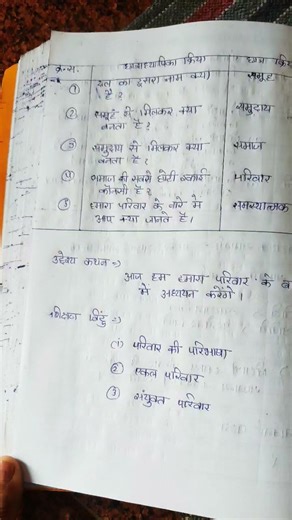 क्र.स. छात्राध्यापिका क्रिया छात्र क्रिया
① दल का दूसरा नाम क्या है? समूह
② समूह से मिलकर क्या बनता है? समुदाय
③ समुदाय से मिलकर क्या बनता है? समाज
④ समाज की सबसे छोटी इकाई कौनसी है? परिवार
⑤ हमारा परिवार के बारे में आप क्या जानते है। समस्यात्मक
उद्देश्य कथन ⇒
आज हम हमारा परिवार के ब
मे अध्ययन करेंगे।
शिक्षण बिंदु ⇒
(1) परिवार की परिभाषा
② एकल परिवार
③ संयुक्त परिवार